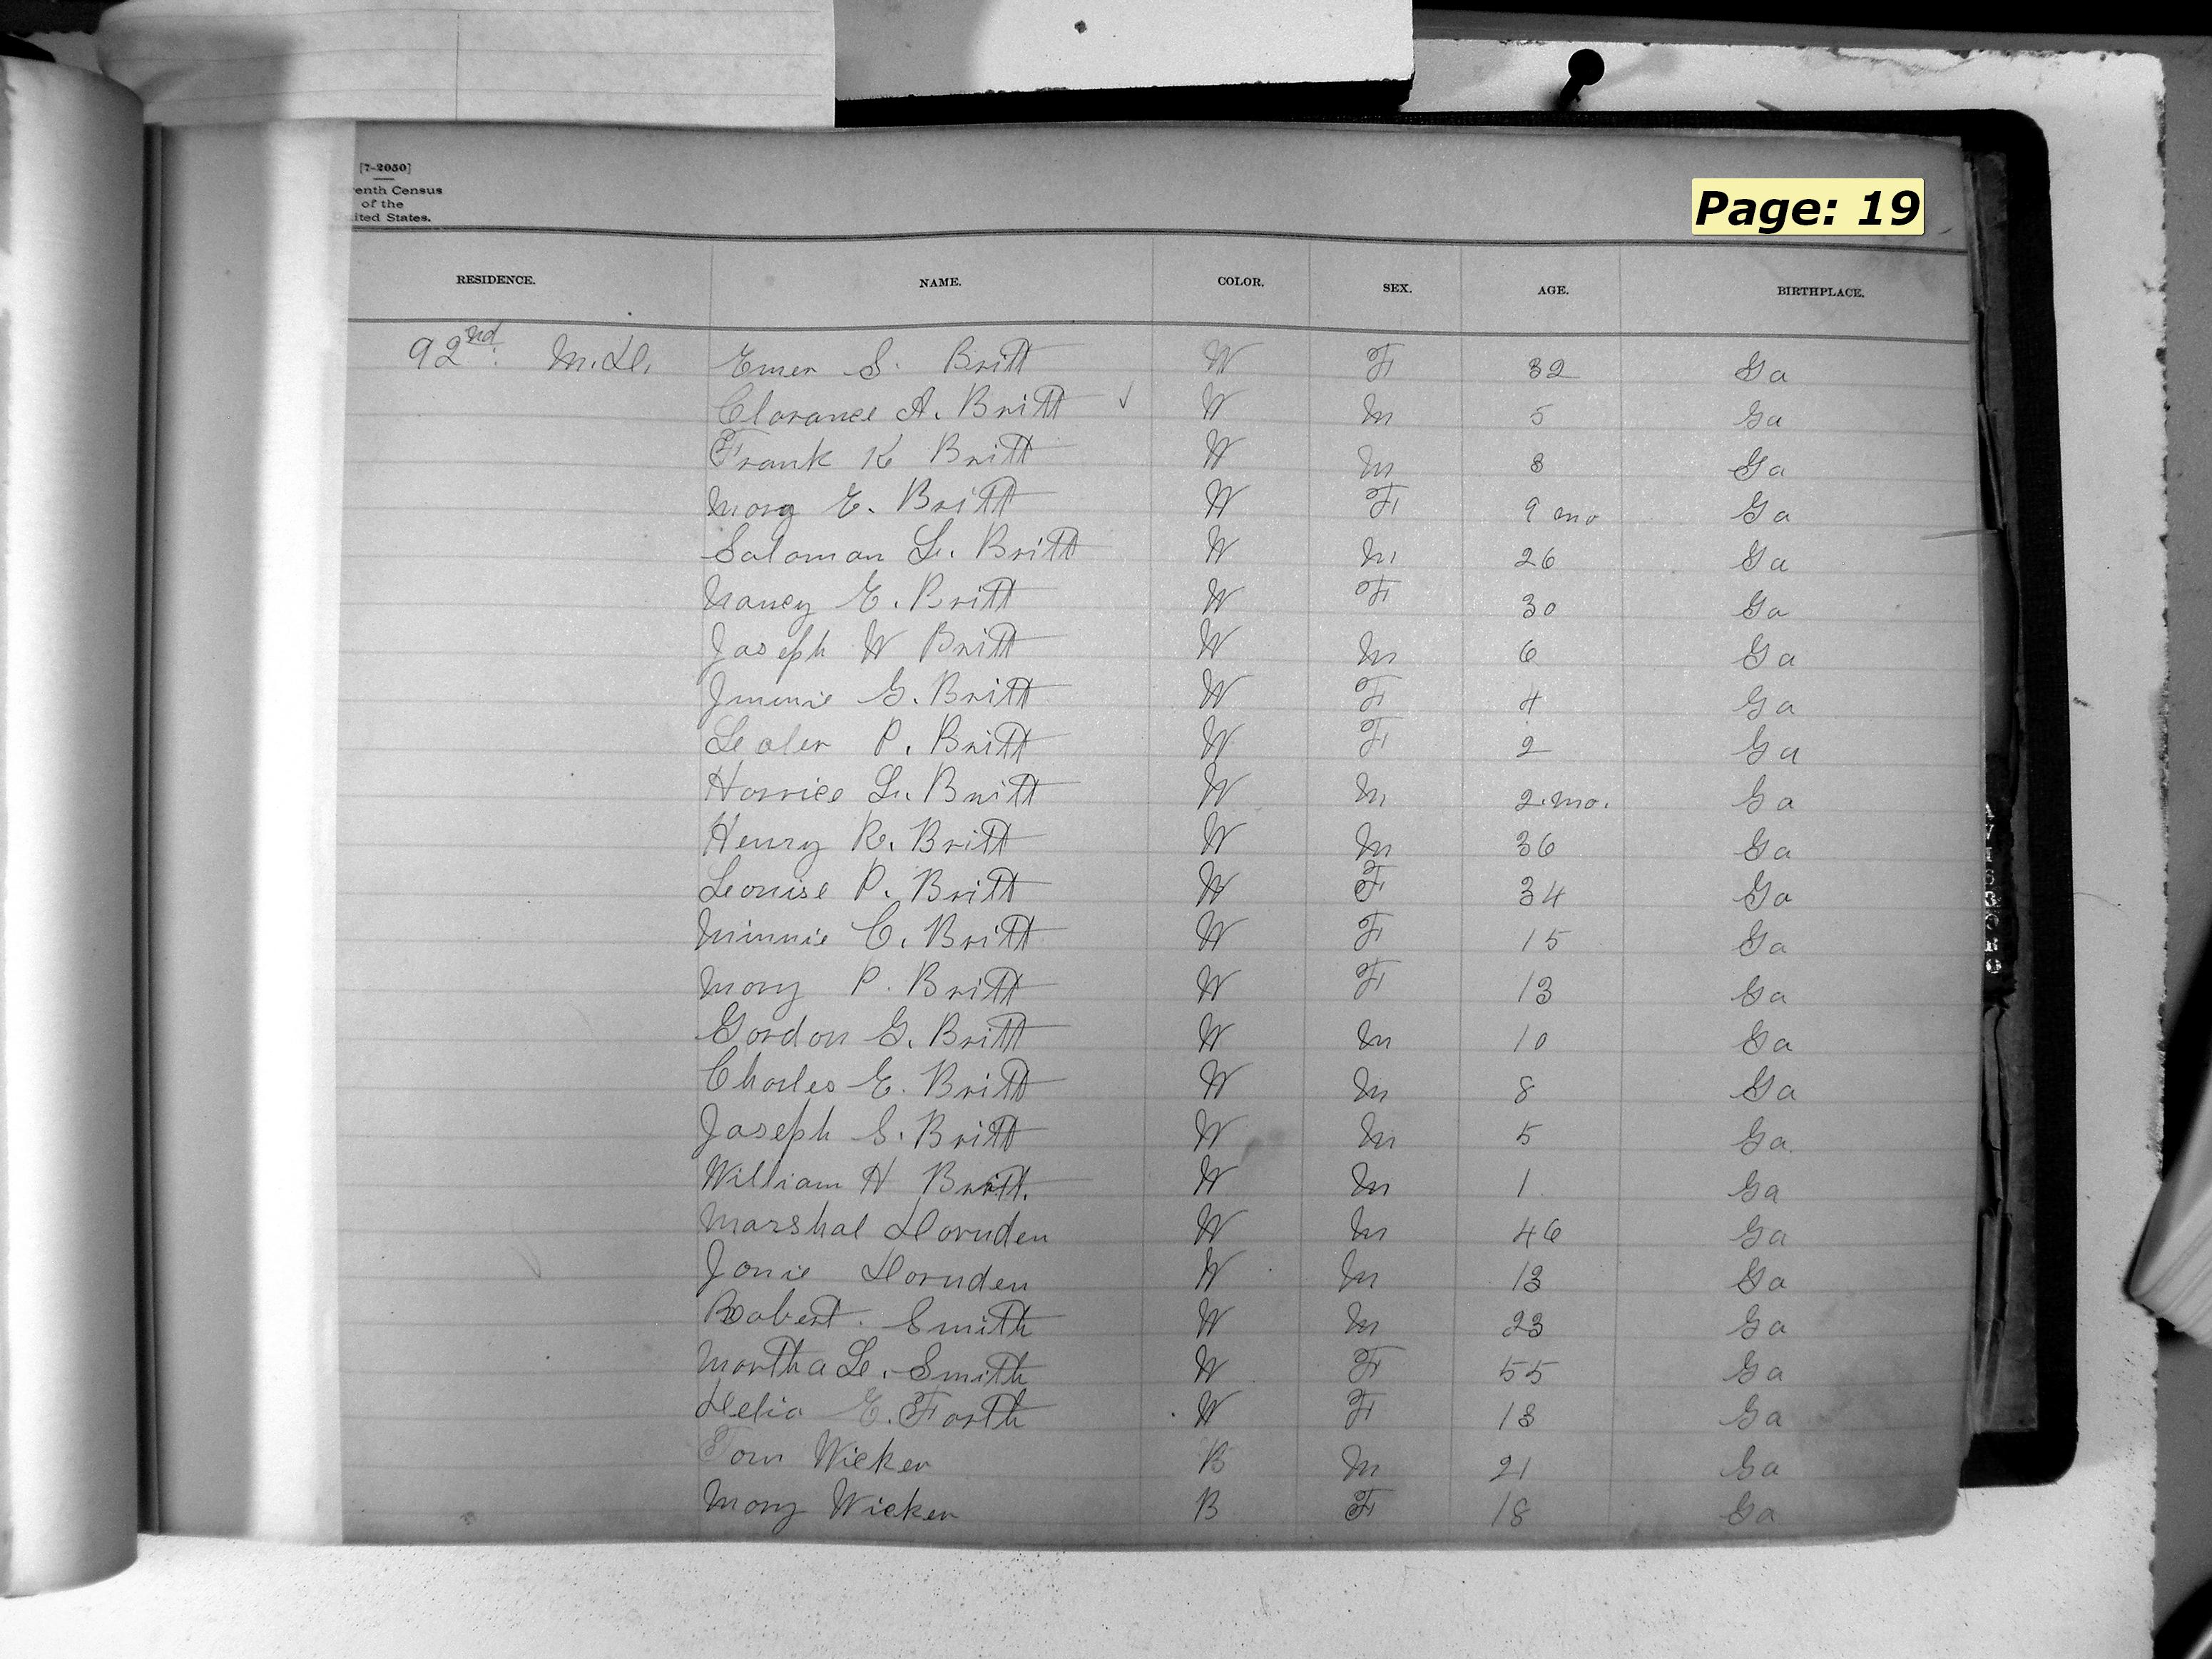 [7-2050]
enth Census
of the
ited States.
Page: 19
RESIDENCE. NAME. COLOR. SEX. AGE. BIRTHPLACE.
92nd. M.D. Emer S. Britt W F 32 Ga
Clarance A. Britt ✓ W M 5 Ga
Frank K Britt W M 3 Ga
Mary E. Britt W F 9 mo Ga
Saloman L. Britt W M 26 Ga
Nancy E. Britt W F 30 Ga
Joseph W Britt W M 6 Ga
Jimmie G. Britt W F 4 Ga
Lealer P. Britt W F 2 Ga
Harrice L. Britt W M 2.mo. Ga
Henry R. Britt W M 36 Ga
Leouise P. Britt W F 34 Ga
Minnie C. Britt W F 15 Ga
Mary P. Britt W F 13 Ga
Gordon G. Britt W M 10 Ga
Charles E. Britt W M 8 Ga
Joseph S. Britt W M 5 Ga
William H Britt. W M 1 Ga
Marshal Daruden W M 46 Ga
Janie Daruden W M 13 Ga
Robert. Smith W M 23 Ga
Martha L. Smith W F 55 Ga
Delia E. Farth W F 18 Ga
Tom Wicker B M 21 Ga
Mary Wicker B F 18 Ga